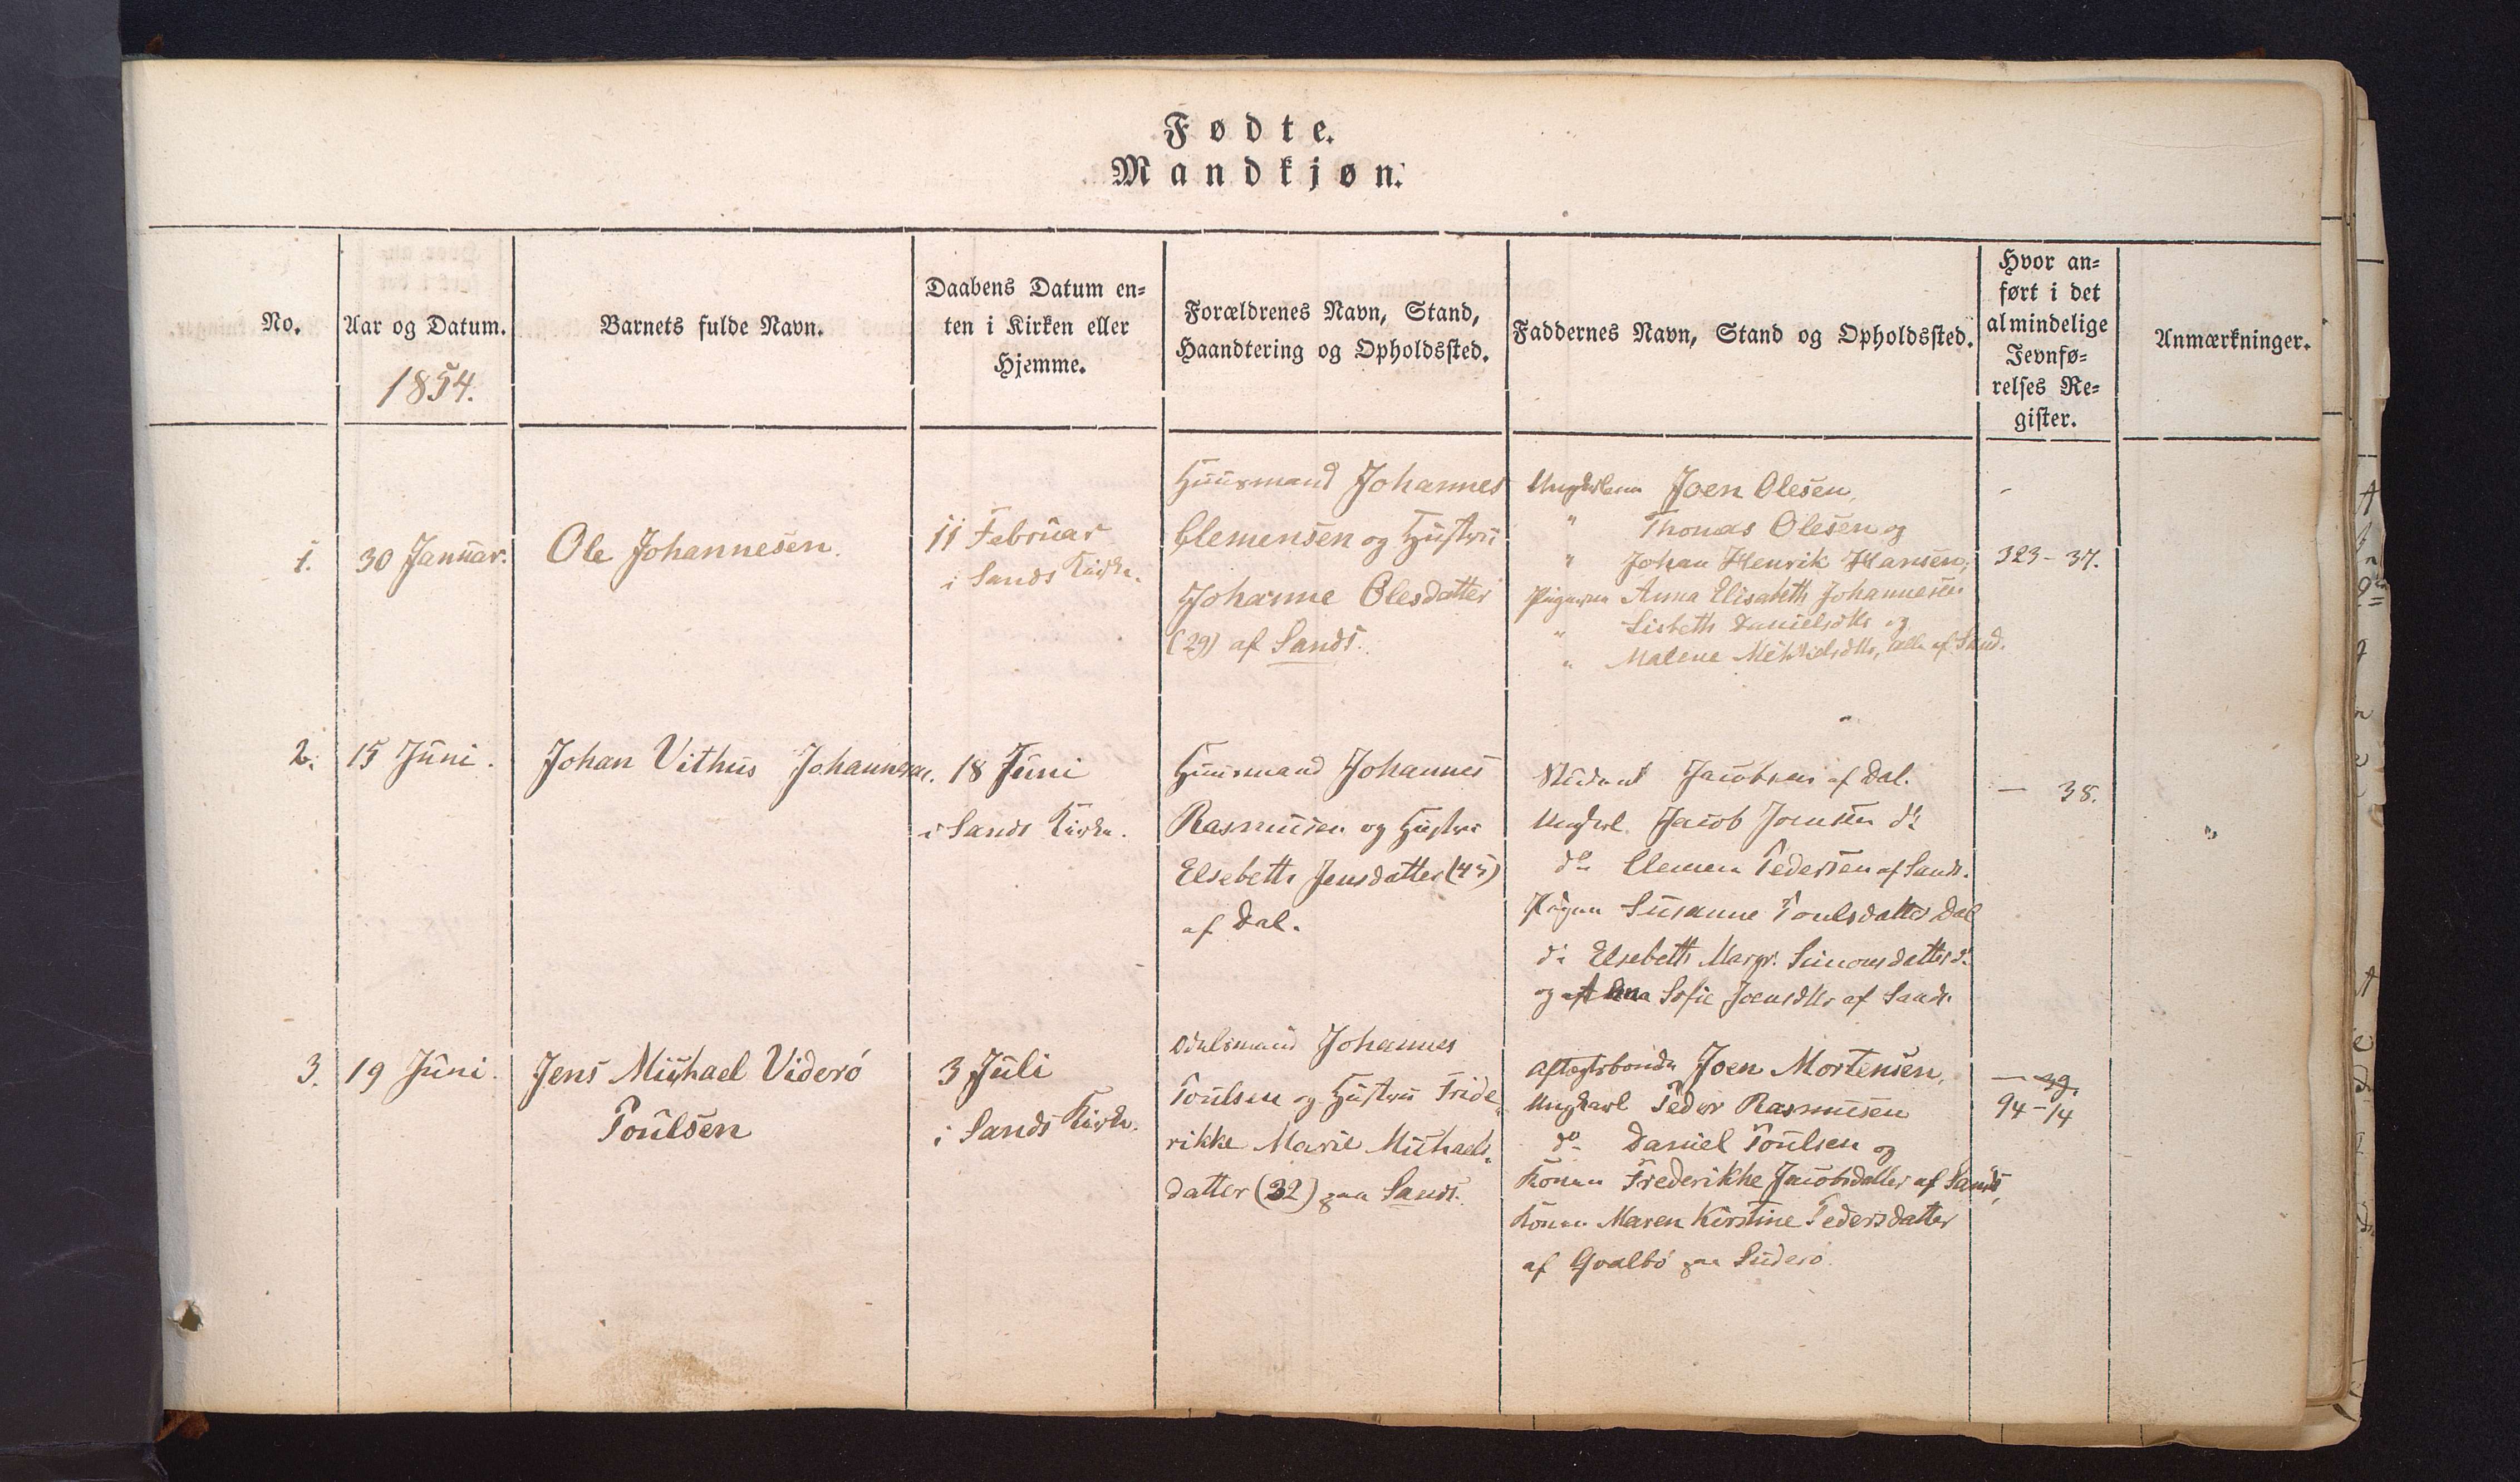 Fødte.
Mandkjøn.
No.
Aar og Datum.
1854.
Barnets fulde Navn.
Daabens Datum en-
ten i Kirken eller
Hjemme.
Forældrenes Navn, Stand,
Haandtering og Opholdssted.
Faddernes Navn, Stand og Opholdssted.
Hvor an-
ført i det
almindelige
Jevnfø-
relses Re-
gister.
Anmærkninger.
1.
30 Januar.
Ole Johannesen.
11 Februar
i Sands Kirke.
Huusmand Johannes
Clemensen og Hustru
Johanne Olesdatter
(29) af Sand.
Ungkarlene Joen Olesen,
" Thomas Olesen og
" Johan Henrik Hansen,
Pigerne Anna Elisabeth Johannesen
" Lisbeth Danielsdtr og
" Malene Mikkelsdtr, alle af Sand.
-
323 - 37.
2.
15 Juni.
Johan Vithus Johannesen.
18 Juni
i Sands Kirke.
Huusmand Johannes
Rasmusen og Hustru
Elsebeth Jensdatter (45)
af Dal.
Student Jacobsen af Dal.
Ungkarl Jacob Joensen do
do Clemen Pedersen af Sand.
Pigen Susanne Poulsdatter Dal
do Elsebeth Margr. Simonsdatter do
og Anna Sofie Joensdtr af Sand.
— 38.
"
3.
19 Juni.
Jens Michael Viderö
Poulsen
3 Juli
i Sands Kirke.
Odelsmand Johannes
Poulsen og Hustru Fride-
rikke Marie Michaels-
datter (32) paa Sand.
Aftægtsbonde Joen Mortensen,
Ungkarl Peder Rasmusen
do Daniel Poulsen og
Konen Frederikke Jacobsdatter af Sand,
Konen Maren Kirstine Pedersdatter
af Qvalbö paa Suderö.
— 39.
94 - 14